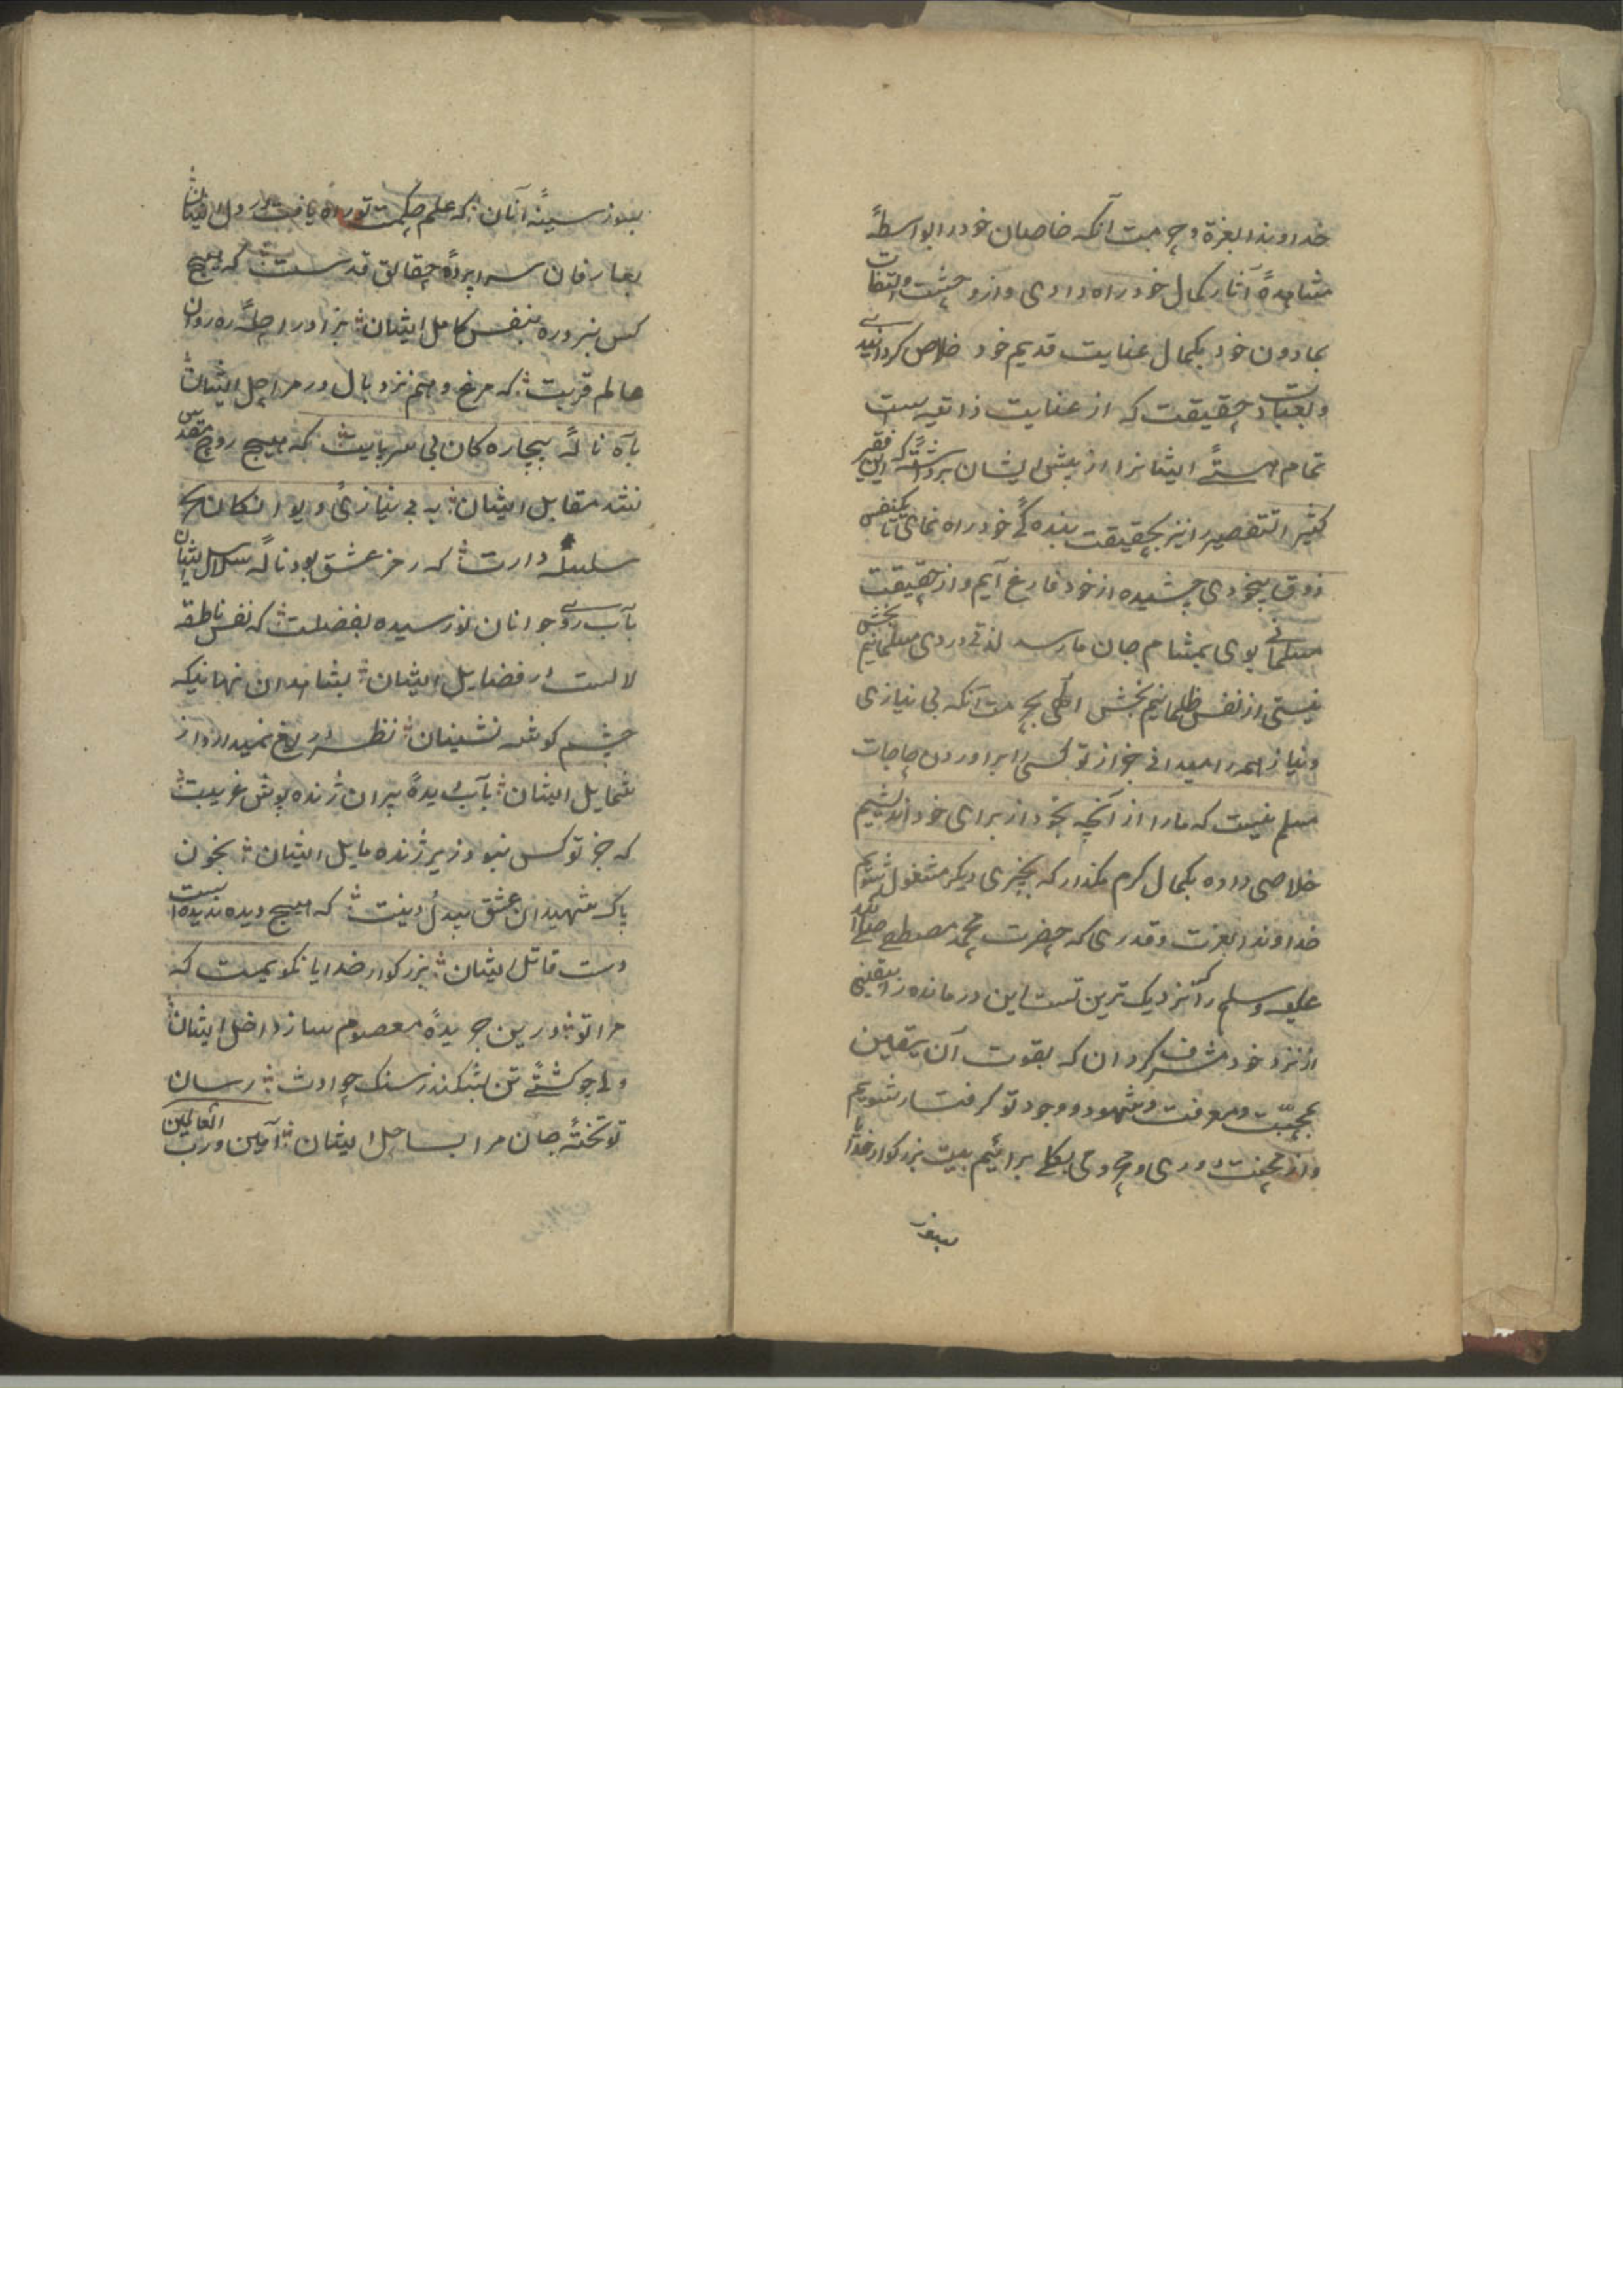 خداوندا بعزة و حرمت آنکه خاصان خود را بواسطهٔ
مشاهدهٔ آثار کمال خود راه دادی و از وحشت والتفات
بمادون خود بکمال عنایت قدیم خود خلاص کردانیدی
و بعنایت حقیقت که از عنایت ذاتیه است
تمام هستئ ایشانرا از پیش ایشان برداشتهٔ که این فقیر
کثیر التقصیر را نیز بحقیقت بنده کی خود راه نمای تا یکنفس
ذوق بیخودی چشیده از خود فارغ آیم و از حقیقت
مسلمانی بوی بمشام جان ما رسد لذتی دردی مسلمانیم بخش
نیستی از نفس ظلمانیم بخش الهی بحرمت آنکه بی نیازی
و نیاز همه را میدانی جز از تو کسی را براوردن حاجات
مسلم نیست که ما را از آنچه بخود از برای خود اندیشیم
خلاصی داده بکمال کرم مکذار که بچیزی دیکر مشغول شویم
خداوندا بعزت و قدری که حضرت محمد مصطفی صلی الله
علیه وسلم را نزدیک ترین تست این درمانده را یقینی
از نزد خود مشرف کردان که بقوت آن یقین
بمحبّت و معرفت و شهود و وجود تو کرفتار شویم
و از محنت دوری و محرومی بکلی برائیم بیت بزرکوار خدایا
بسوز
بسوز سینهٔ آنان که علم حکمت تو راه یافت در دل ایشان
بعارفان سراپردهٔ حقایق قدست که هیچ
کس نبرد ره بنفس کامل ایشان بزاد راحلهٔ ره روان
عالم قربت که مرغ وهم نزد بال در مراحل ایشان
بآه نالهٔ بیچاره کان بی سر پایت که هیچ روح مقدس
نشد مقابل ایشان به بی نیازئ دیوانکان
سلسله دارت که رمز عشق بود نالهٔ سلاسل ایشان
بآب روی جوانان نو رسیده بفضلت که نفس ناطقه
لالست در فضایل ایشان بشاهدان نهانیکه
چشم کوشه نشینان نظر دریغ نمیدارد از
شمایل ایشان بآب دیدهٔ پیران ژنده پوش غریبت
که جز تو کس نبود زیر ژنده مایل ایشان بخون
پاک شهیدان عشق بیدل دینت که هیچ دیده ندیده است
دست قاتل ایشان بزرکوار خدایا نکویمت که
مرا تو درین جریدهٔ معصوم ساز داخل ایشان
ولی چو کشتئ تن بشکند ز سنک حوادث رسان
تو تختهٔ جان مرا بساحل ایشان آمین و رب العالمین